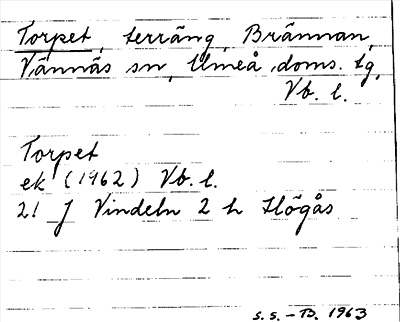 Torpet, terräng, Brännan,
Vännäs sn, Umeå doms. tg,
Vb. l.
Torpet
ek (1962) Vb. l.
21 J Vindeln 2 h Högås
S. S. - B. 1963